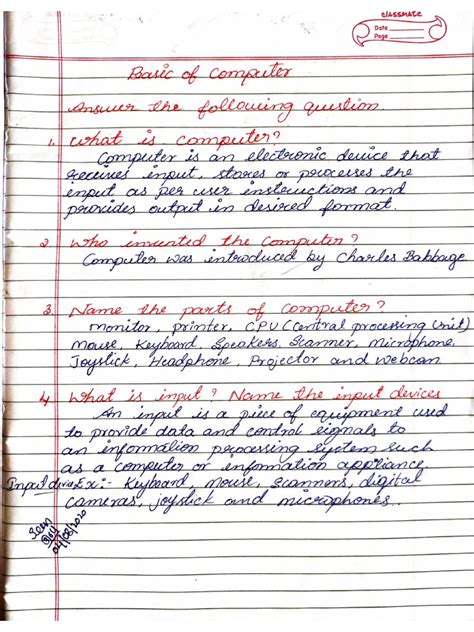 CLASSMATE
Date
Page
Basic of Computer
Answer the following question.
1. What is computer?
Computer is an electronic device that
receives input, stores or processes the
input as per user instructions and
provides output in desired format.
2. Who invented the Computer?
Computer was introduced by Charles Babbage
3. Name the parts of Computer?
Monitor, printer, CPU (Central processing Unit)
Mouse, Keyboard, Speakers, Scanner, Microphone,
Joystick, Headphone, Projector and webcam
4. What is input? Name the input devices
An input is a piece of equipment used
to provide data and control signals to
an information processing system such
as a computer or information appliance
Input device Ex:- Keyboard, mouse, scanners, digital
cameras, joystick and microphones.
Seen
04/08/2020